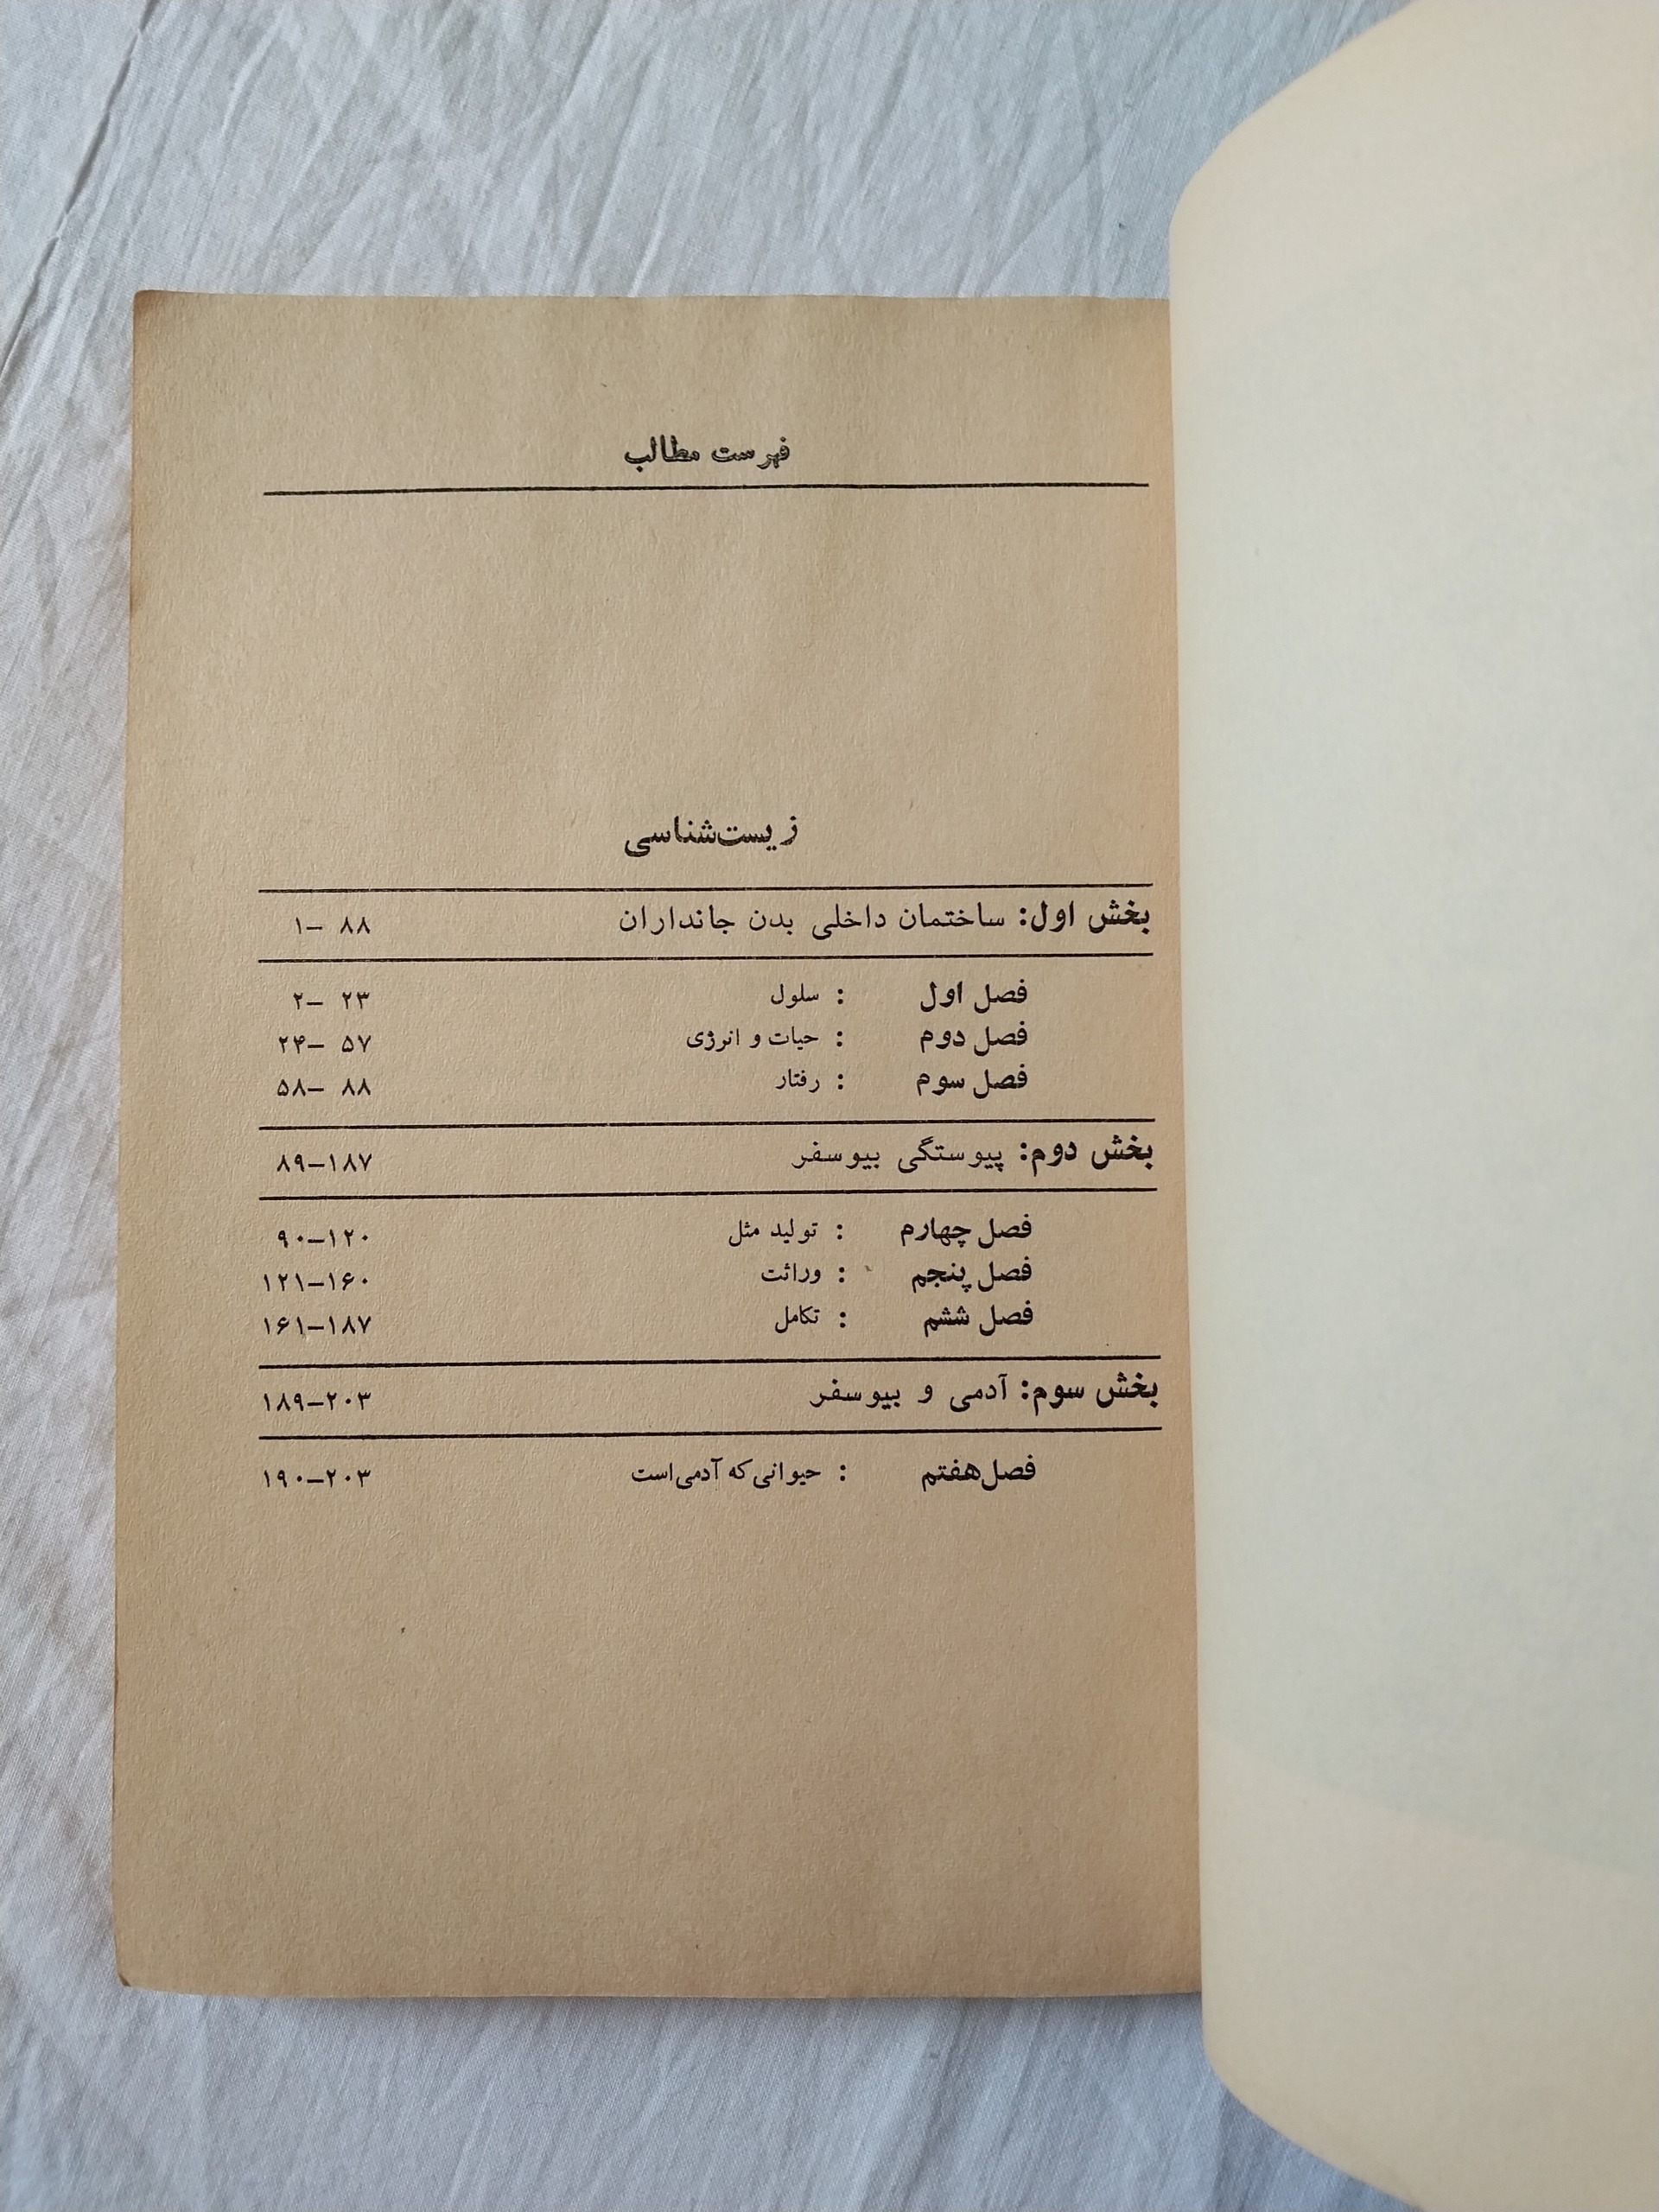 فهرست مطالب
زیست‌شناسی
بخش اول: ساختمان داخلی بدن جانداران ۱– ۸۸
فصل اول : سلول ۲– ۲۳
فصل دوم : حیات و انرژی ۲۴– ۵۷
فصل سوم : رفتار ۵۸– ۸۸
بخش دوم: پیوستگی بیوسفر ۸۹–۱۸۷
فصل چهارم : تولید مثل ۹۰–۱۲۰
فصل پنجم : وراثت ۱۲۱–۱۶۰
فصل ششم : تکامل ۱۶۱–۱۸۷
بخش سوم: آدمی و بیوسفر ۱۸۹–۲۰۳
فصل هفتم : حیوانی که آدمی است ۱۹۰–۲۰۳